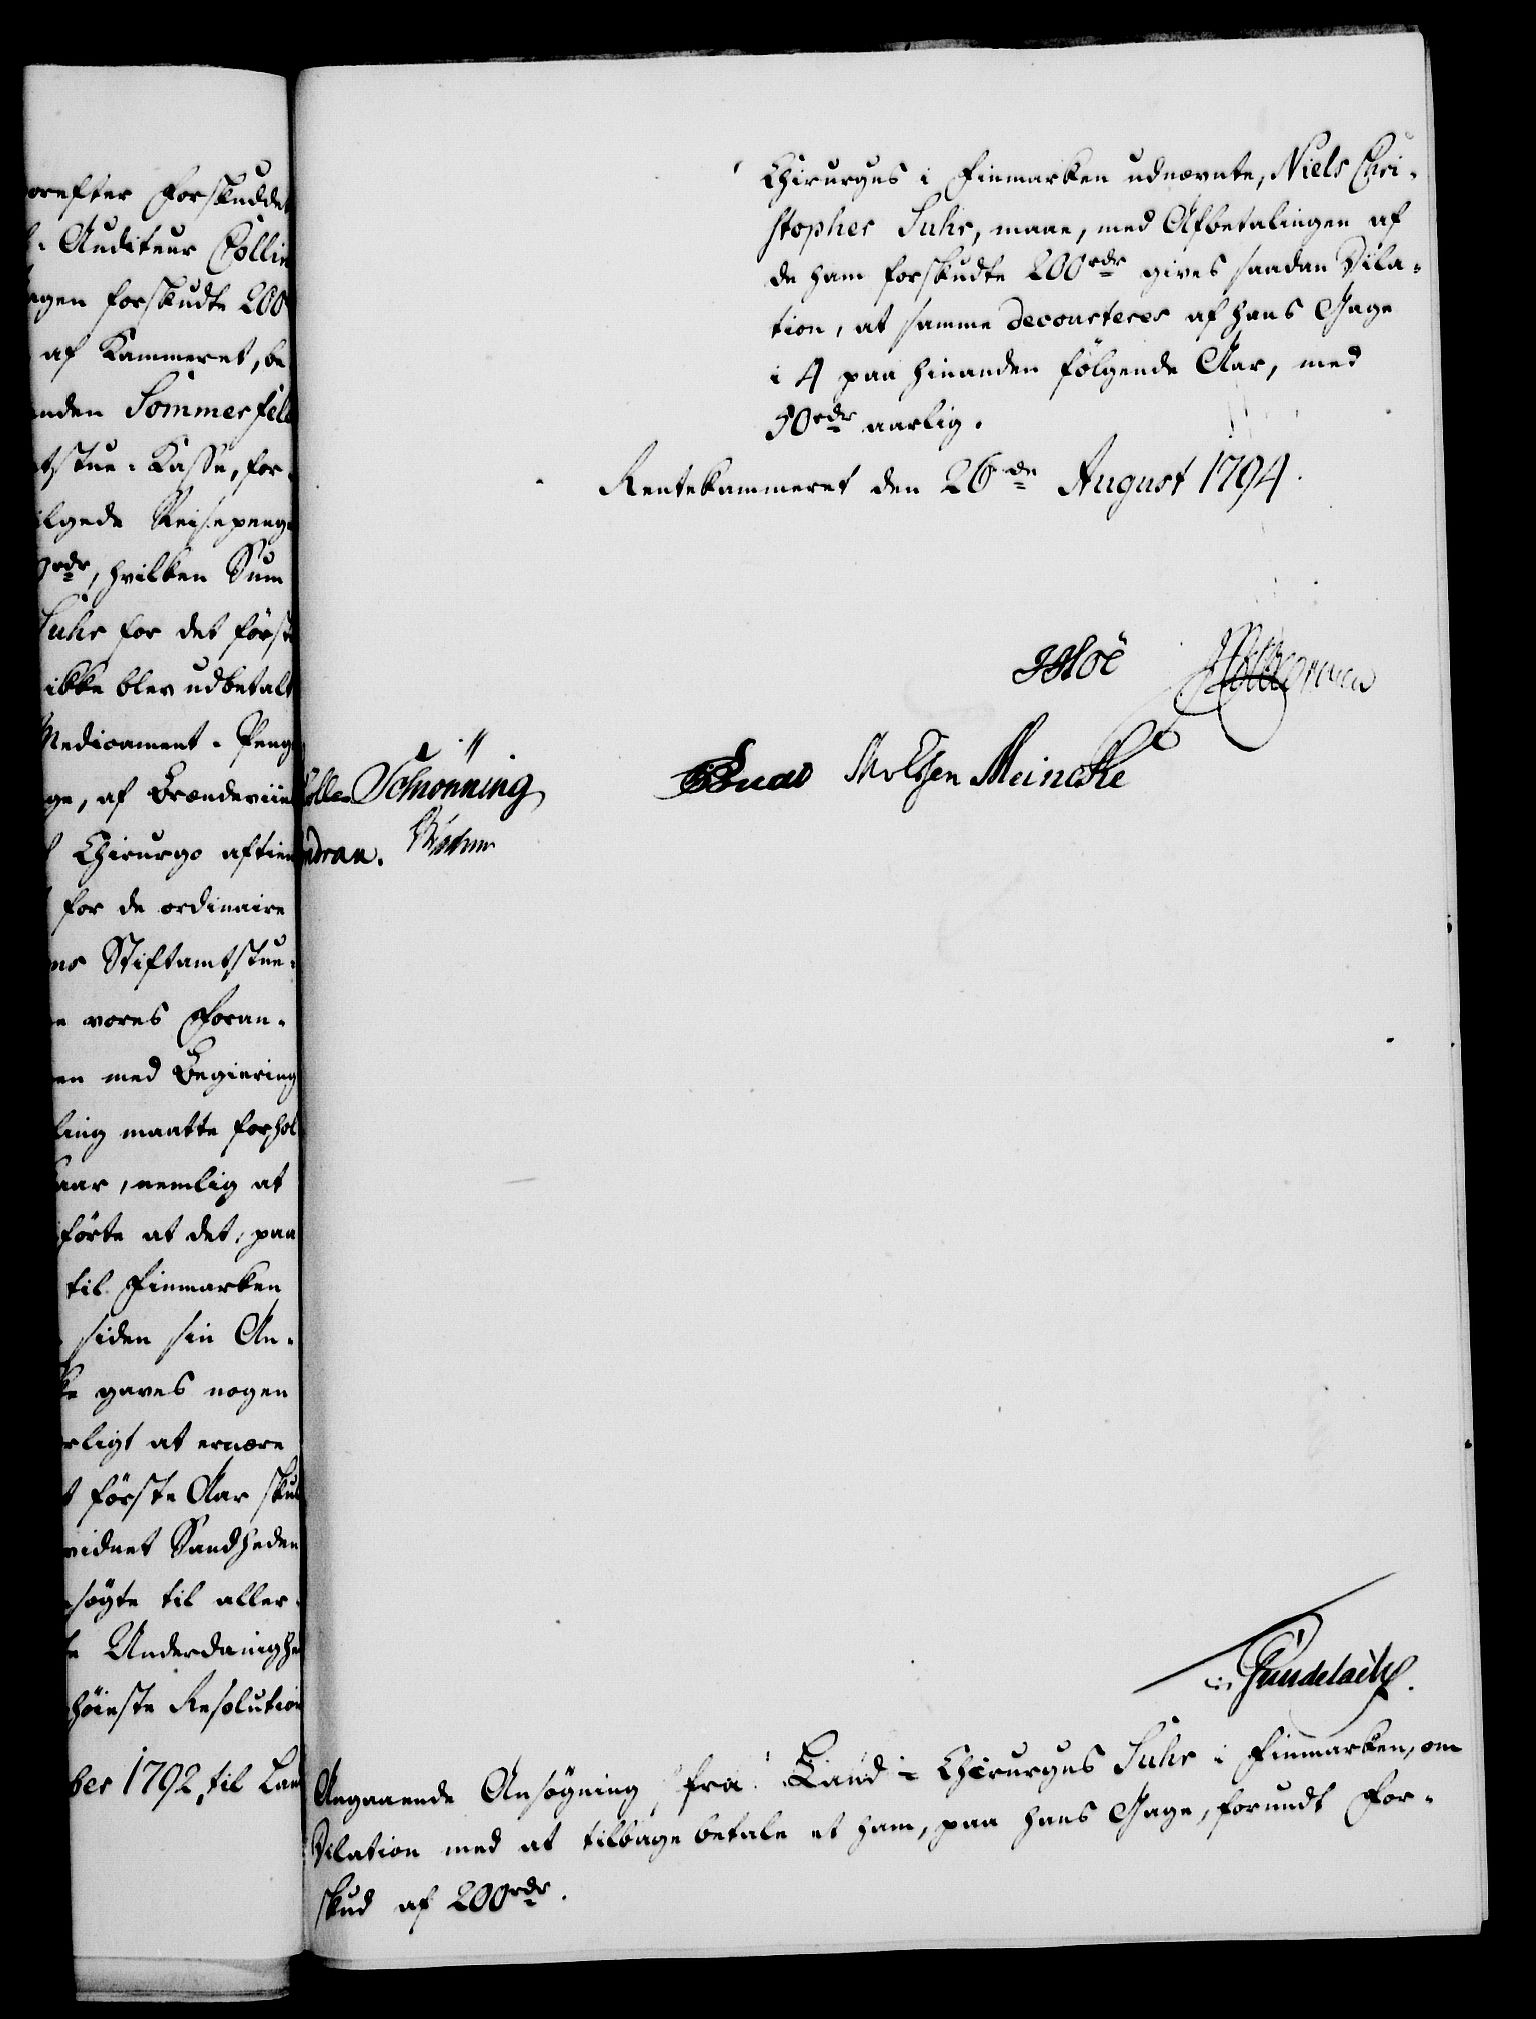 orefter Forskuddet
Auditeur Collin
agen forskudte 200
af Kammeret, be
anden Sommerfel
tstue-Kasse, for-
ilgede Reisepeng
0 rdr, hvilken Sum
Suhr for det först
ikke blev udbetalt
Medicament-Peng
ge, af Brændeviin
Chirurgo aftien
for de ordinaire
ns Stiftamtstue-
e vores Foran-
en med Begiering
ling maatte forhol
aar, nemlig at
förte at det, paa
til Finmarken
siden sin An-
ke gaves nogen
rligt at ernære
t förste Aar skul
vidnet Sandheden
sögte til aller-
te Underdanighe
höieste Resolution
ber 1792, til Lan
Chirurgus i Finmarken udnævnte, Niels Chri-
stopher Suhr, maae, med Afbetalingen af
de ham forskudte 200 rdr gives saadan Dila-
tion, at samme decourteres af hans Gage
i 4 paa hinanden fölgende Aar, med
50 rdr aarlig.
Rentekammeret den 26de August 1794.
Hoë
Schiönning
Meincke
Gundelach.
Angaaende Ansögning fra Land-Chirurgus Suhr i Finmarken, om
Dilation med at tilbagebetale et ham, paa hans Gage, forundt For-
skud af 200 rdr.